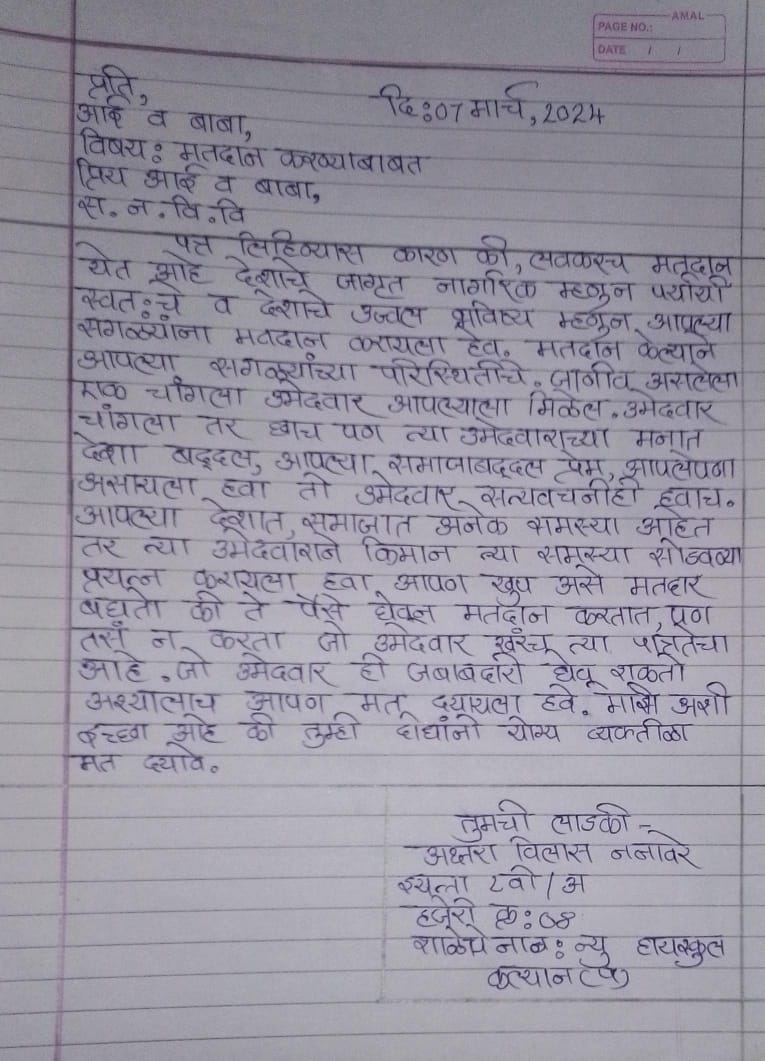 AMAL
PAGE NO.:
DATE / /
प्रति,
दि:07 मार्च, 2024
आई व बाबा,
विषय: मतदान करण्याबाबत
प्रिय आई व बाबा,
स. न. वि. वि
पत्र लिहिण्यास कारण की, लवकरच मतदान
येत आहे देशाचे जागृत नागरिक म्हणून पर्यायी
स्वत:चे व देशाचे उज्वल भविष्य म्हणून आपल्या
सगळ्यांना मतदान करायला हव. मतदान केल्याने
आपल्या सगळ्यांच्या परिस्थितीचे. जाणीव असलेला
एक चांगला उमेदवार आपल्याला मिळेल. उमेदवार
चांगला तर हवाच पण त्या उमेदवाराच्या मनात
देशा बद्दल, आपल्या समाजाबद्दल प्रेम, आपलेपणा
असायला हवा तो उमेदवार सत्यवचनीही हवाच.
आपल्या देशात, समाजात अनेक समस्या आहेत
तर त्या उमेदवाराने किमान त्या समस्या सोडवव्या
प्रयत्न करायला हवा आपण खुप असे मतदार
बघतो की ते पैसे घेवून मतदान करतात, पण
तसं न करता जो उमेदवार खरंच त्या पात्रतेचा
आहे. जो उमेदवार ही जबाबदारी घेवू शकतो
अश्यालाच आपण मत द्यायला हवे. माझी अशी
इच्छा आहे की तुम्ही दोघांनी योग्य व्यक्तीला
मत द्यावे.
तुमची लाडकी -
अक्षरा विलास ननावरे
इयत्ता ८वी / अ
हजेरी क्र: 08
शाळेचे नाव: न्यु हायस्कुल
कल्यान (प)